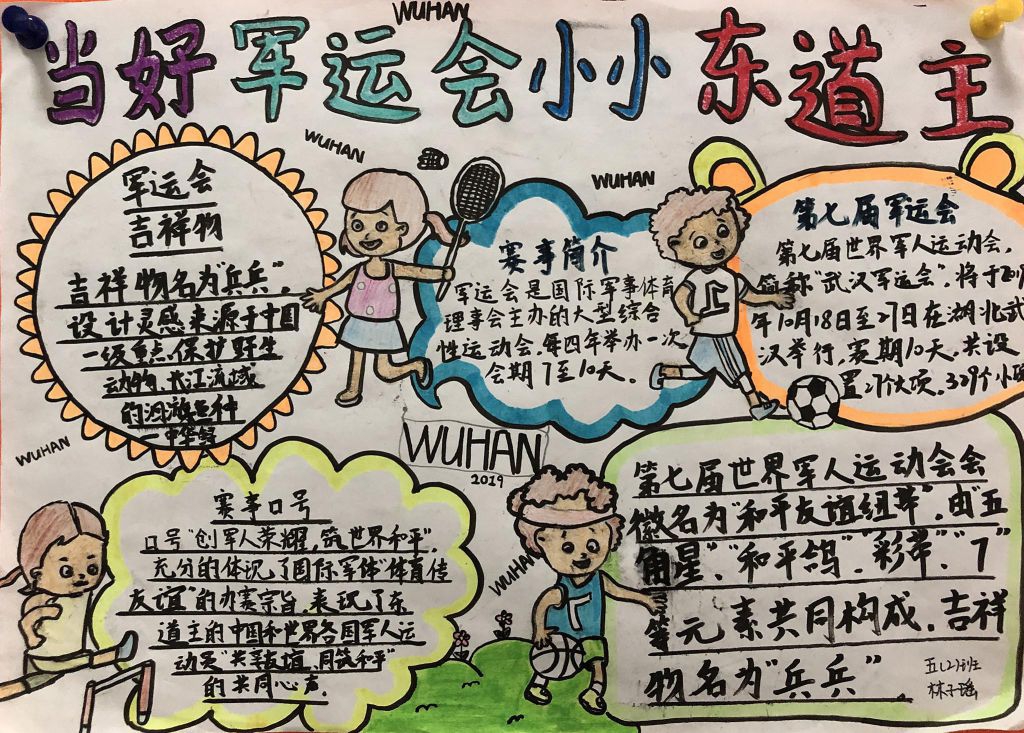 WUHAN
当好军运会小小东道主
WUHAN
WUHAN
军运会
吉祥物
吉祥物名为"兵兵"。
设计灵感来源于中国
一级重点保护野生
动物、长江流域
的洄游鱼种
一中华鲟
赛事简介
军运会是国际军事体育
理事会主办的大型综合
性运动会，每四年举办一次
会期7至10天。
第七届军运会
第七届世界军人运动会，
简称"武汉军运会"，将于
年10月18日至27日在湖北武
汉举行，赛期10天，共设
置27个大项、329个小项
WUHAN
WUHAN
2019
赛事口号
口号"创军人荣耀，筑世界和平"，
充分的体现了国际军体"体育传
友谊"的办赛宗旨，表现了东
道主的中国和世界各国军人运
动员"共享友谊、同筑和平"
的共同心声。
WUHAN
第七届世界军人运动会会
徽名为"和平友谊纽带"，由"五
角星"、"和平鸽"、"彩带"、"7"
等元素共同构成，吉祥
物名为"兵兵"。
五(2)班
林子瑶